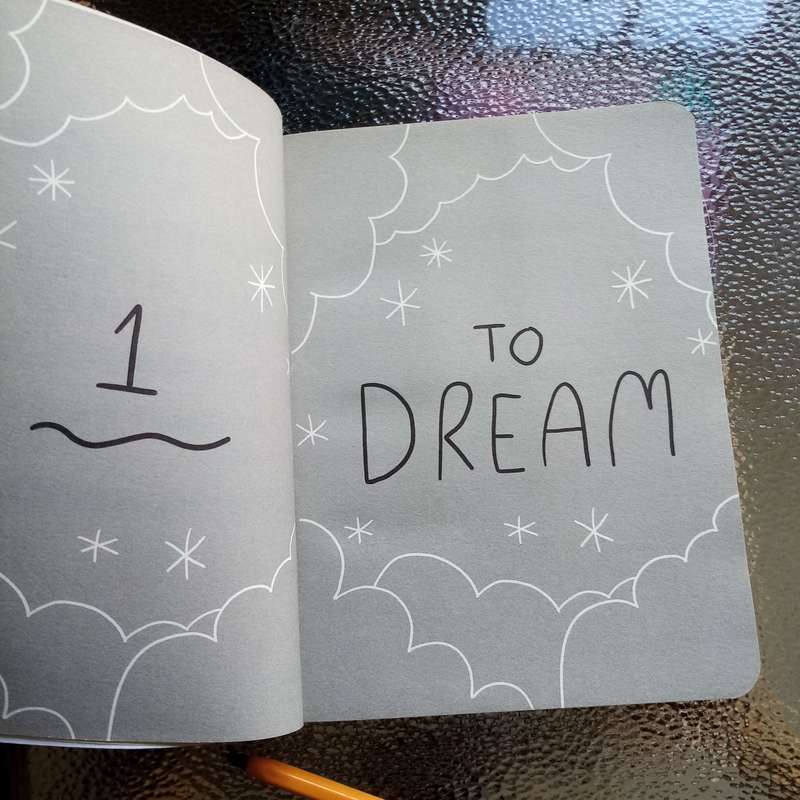 1
TO
DREAM